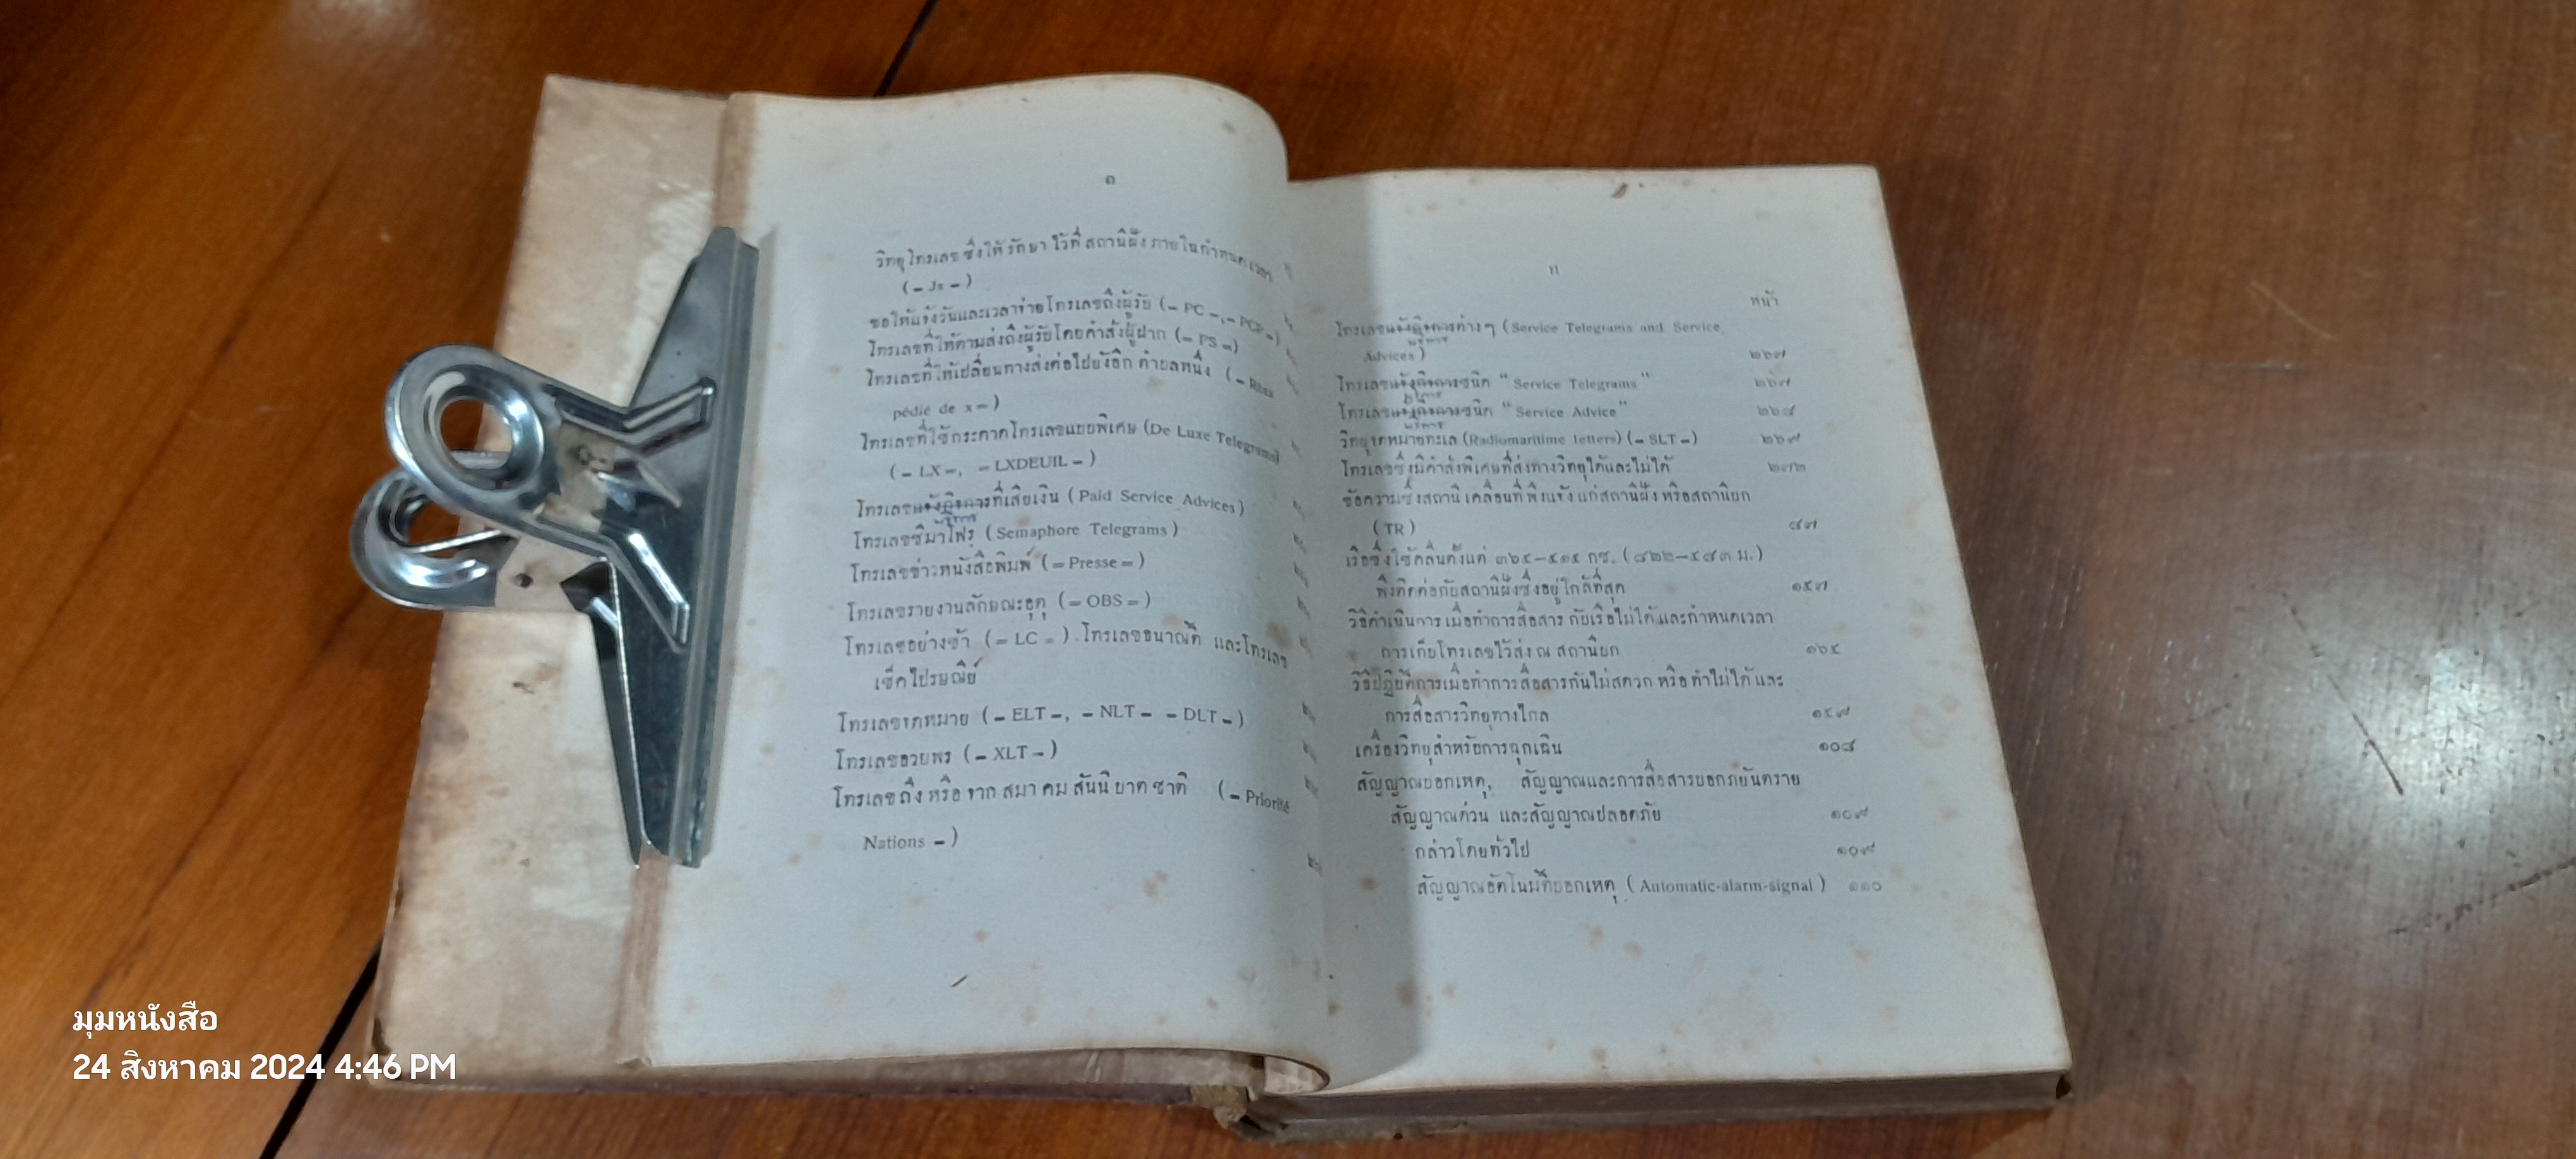 ด
วิทยุโทรเลขซึ่งให้รักษาไว้ที่สถานีฝั่งภายในกำหนดเวลา
(= Jx =)
ขอให้แจ้งวันและเวลาจ่ายโทรเลขถึงผู้รับ (= PC =, = PCP =)
โทรเลขที่ให้ตามส่งถึงผู้รับโดยคำสั่งผู้ฝาก (= FS =)
โทรเลขที่ให้เปลี่ยนทางส่งต่อไปยังอีกตำบลหนึ่ง (= Réex
pédié de x =)
โทรเลขที่ใช้กระดาดโทรเลขแบบพิเศษ (De Luxe Telegrams)
(= LX =, = LXDEUIL =)
โทรเลขแจ้งกิจการที่เสียเงิน (Paid Service Advices)
บริการ
โทรเลขซีม่าโฟร์ (Semaphore Telegrams)
โทรเลขข่าวหนังสือพิมพ์ (= Presse =)
โทรเลขรายงานลักษณะอุตุ (= OBS =)
โทรเลขอย่างช้า (= LC =) โทรเลขธนาณัติ และโทรเลข
เช็คไปรษณีย์
โทรเลขจดหมาย (= ELT =, = NLT = = DLT =)
โทรเลขอวยพร (= XLT =)
โทรเลขถึงหรือจากสมาคมสันนิบาตชาติ (= Priorité
Nations =)
ท
หน้า
โทรเลขแจ้งกิจการต่างๆ (Service Telegrams and Service
บริการ
Advices) ๒๖๗
โทรเลขแจ้งกิจการชนิด "Service Telegrams" ๒๖๗
บริการ
โทรเลขแจ้งกิจการชนิด "Service Advice" ๒๖๘
บริการ
วิทยุจดหมายทะเล (Radiomaritime letters) (= SLT =) ๒๖๙
โทรเลขซึ่งมีคำสั่งพิเศษที่ส่งทางวิทยุได้และไม่ได้ ๒๗๒
ข้อความซึ่งสถานีเคลื่อนที่พึงแจ้งแก่สถานีฝั่งหรือสถานีบก
(TR) ๘๗
เรือซึ่งใช้คลื่นตั้งแต่ ๓๖๕—๕๑๕ กซ. (๘๒๒—๕๘๓ ม.)
พึงติดต่อกับสถานีฝั่งซึ่งอยู่ใกล้ที่สุด ๑๕๗
วิธีดำเนินการเมื่อทำการสื่อสารกับเรือไม่ได้และกำหนดเวลา
การเก็บโทรเลขไว้ส่ง ณ สถานีบก ๑๖๕
วิธีปฏิบัติการเมื่อทำการสื่อสารกันไม่สดวกหรือทำไม่ได้และ
การสื่อสารวิทยุทางไกล ๑๕๙
เครื่องวิทยุสำหรับการฉุกเฉิน ๑๐๘
สัญญาณบอกเหตุ, สัญญาณและการสื่อสารบอกภยันตราย
สัญญาณด่วน และสัญญาณปลอดภัย ๑๐๙
กล่าวโดยทั่วไป ๑๐๙
สัญญาณอัตโนมัติบอกเหตุ (Automatic-alarm-signal) ๑๑๐
มุมหนังสือ
24 สิงหาคม 2024 4:46 PM